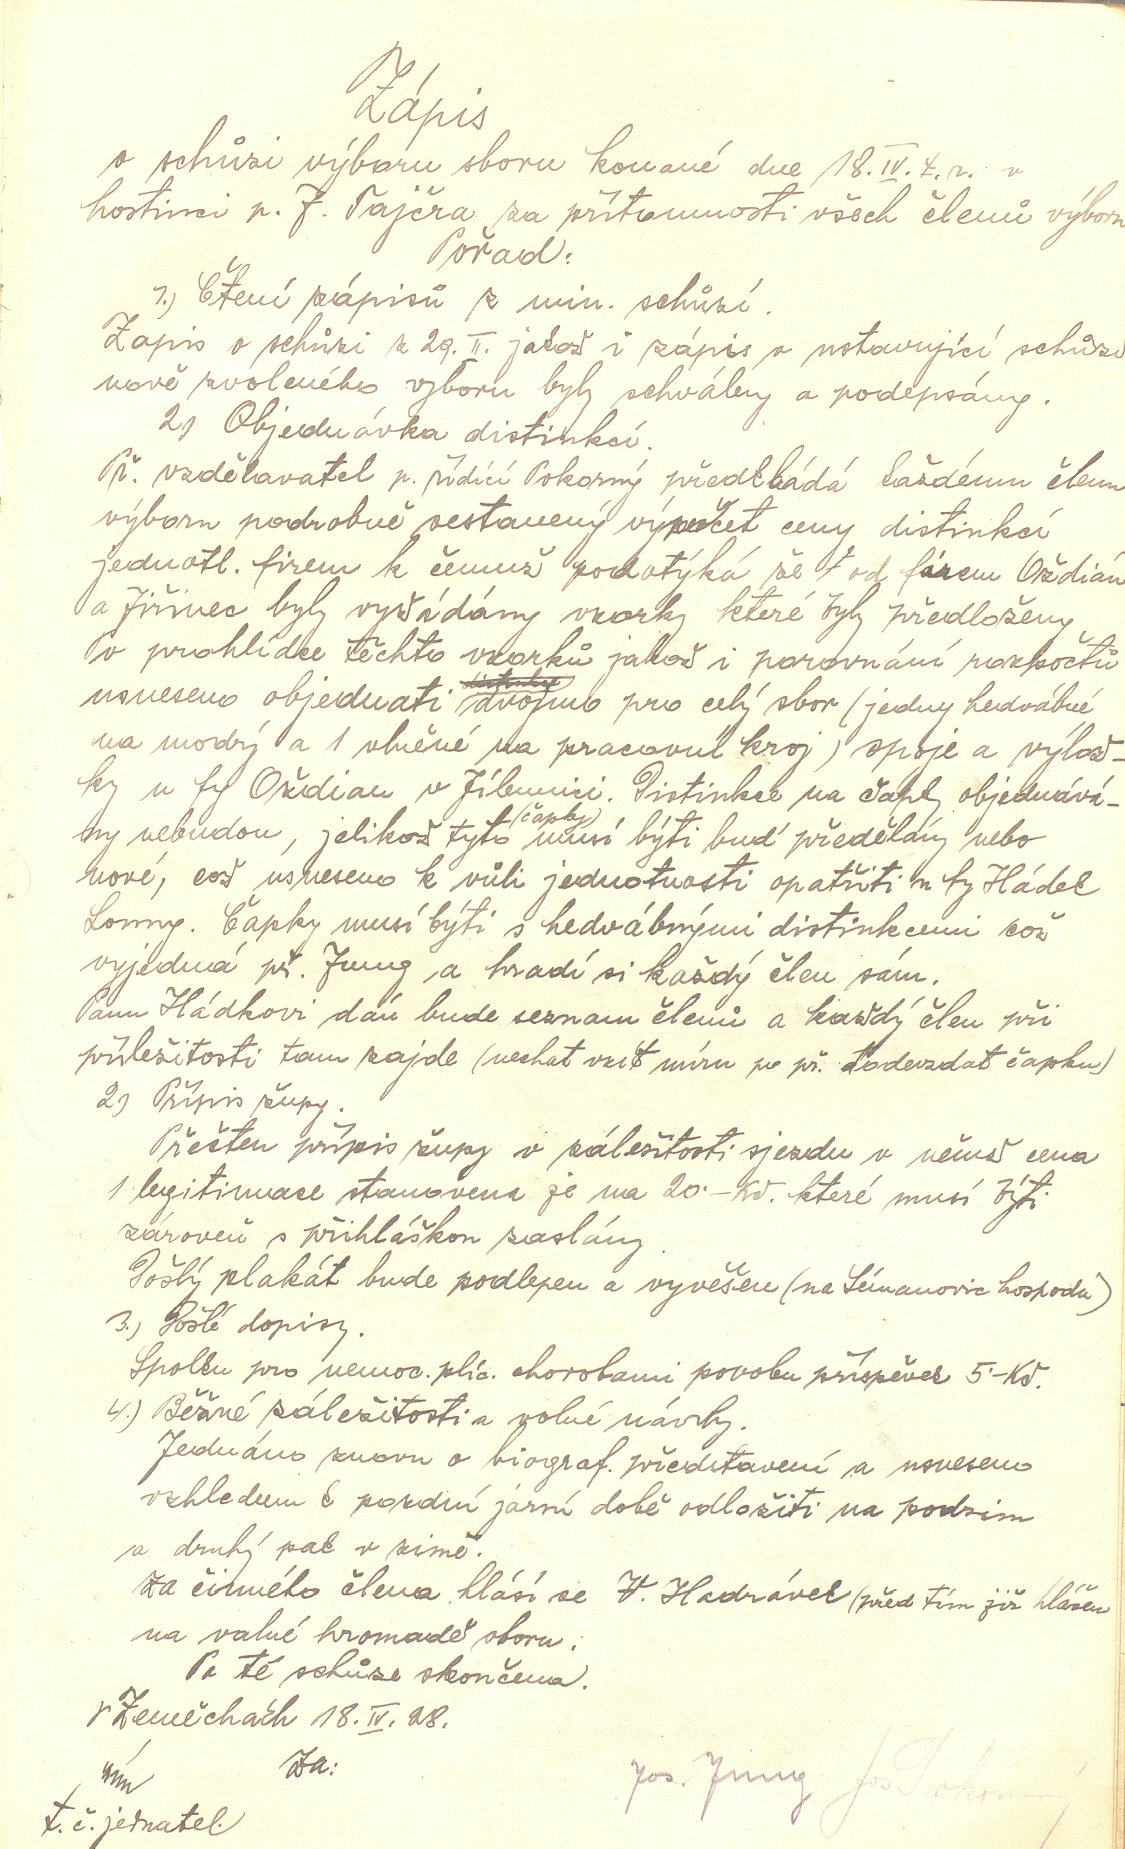 Zápis
o schůzi výboru sboru konané dne 18. IV. t. r. v
hostinci p. F. Tajčra za přítomnosti všech členů výboru
Pořad:
1.) Čtení zápisů z min. schůzí.
Zapis o schůzi z 29. II. jakož i zápis o ustavující schůzi
nově zvoleného výboru byly schváleny a podepsány.
2) Objednávka distinkcí.
Př. vzdělavatel p. řídící Pokorný předkládá každému členu
výboru podrobně sestavený výpočet ceny distinkcí
jednotl. firem k čemuž podotýká že od firem Oždian
a Jiřinec byly vyžádány vzorky které byly předloženy
Po prohlídce těchto vzorků jakož i porovnání rozpočtů
usneseno objednati dvojmo pro celý sbor (jedny hedvábné
na modrý a 1 vlněné na pracovní kroj) spoje a výlož-
ky u fy Oždian v Jilemnici. Distinkce na čapky objednává-
ny nebudou, jelikož tyto (čapky) musí býti buď předělány nebo
nové, což usneseno k vůli jednotnosti opatřiti u fy Hádek
Louny. Čapky musí býti s hedvábnými distinkcemi což
vyjedná př. Jung a hradí si každý člen sám.
Panu Hádkovi dán bude seznam členů a každý člen při
příležitosti tam zajde (nechat vzít míru po př. odevzdat čapku)
2) Přípis župy.
Přečten přípis župy v záležitosti sjezdu v němž cena
1 legitimace stanovena je na 20.- Kč. které musí býti
zároveň s přihláškou zaslány.
Došlý plakát bude podlepen a vyvěšen (na hospodu)
3.) Došlé dopisy.
Spolku pro nemoc. plic. chorobami povolen příspěvek 5.- Kč.
4.) Běžné záležitosti a volné návrhy.
Jednáno znovu o biograf. představení a usneseno
vzhledem k pozdní jarní době odložiti na podzim
a druhý pak v zimě.
Za činného člena hlásí se V. Hadrávek (před tím již hlášen
na valné hromadě sboru.
Po té schůze skončena.
V Zeměchách 18. IV. 28.
Za:
Jos. Jung Jos. Pokorný
t. č. jednatel.